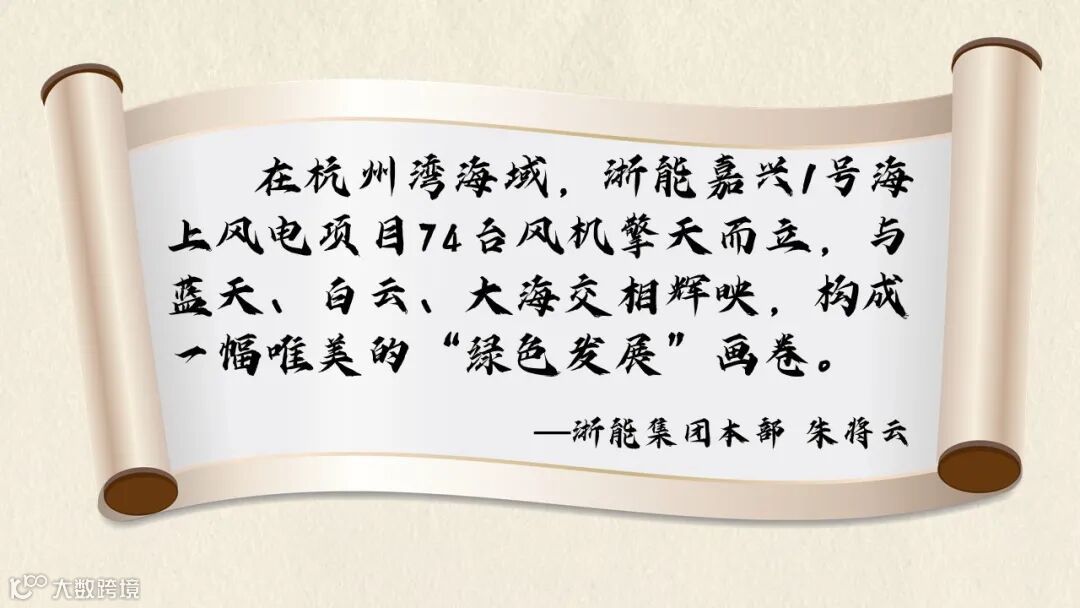 在杭州湾海域，浙能嘉兴1号海
上风电项目74台风机擎天而立，与
蓝天、白云、大海交相辉映，构成
一幅唯美的“绿色发展”画卷。
—浙能集团本部 朱将云
大数跨境